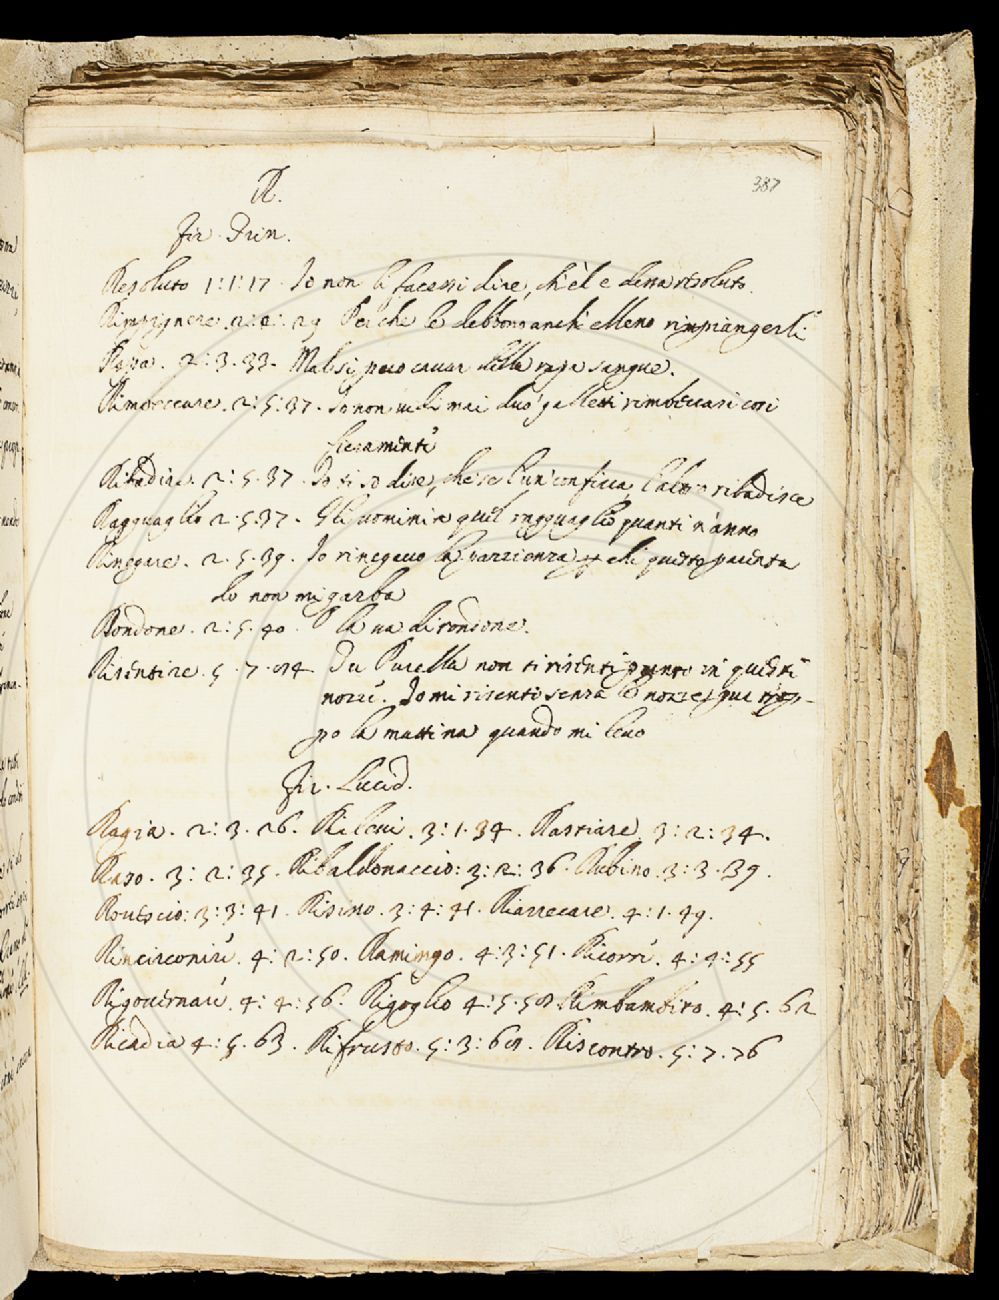 R.
387
Fir. Trin.
Resoluto 1:1:17. Io non la facessi dire, ch'è l'e dessa resoluto.
Rimpignere. 2:2:29 Perche le debbono anch' elleno rimpiangerli
Rapa. 2:3:33. Malsi puo cavar della rapa sangue.
Rimbeccare. 2:5:37. Io non vidi mai duo galletti rimbeccarsi così
fieramente
Ribadire. 2:5.37. Io ti so dire, che se l'un conficca, l'altro ribadisce
Ragguaglio 2.5.37. Gli uomini a quel ragguaglio quanti n'anno
Rinegare. 2.5.39. Io rinegavo la pazzienza, chi questo parenta
do non mi garba
Rondone. 2:5.40. La va di rondone.
Risentire. 5.7. Du Pucella non ti risenti punto in questi
nozze. Io mi risento senza le nozze, pur
po la mattina quando mi levo
Fir. Lucid.
Ragia. 2:3.26. 3:1.34. Rastiare. 3:2:34.
Raso. 3:2:35. Ribaldonaccio: 3:2:36. Rubino. 3:3.39.
Rovescio: 3:3:41. 3:4:41. Riarrecare. 4:1.49.
4:2:50. Ramingo. 4:3:51. Ricorri. 4:4:55
Rigovernare. 4:4:56. Rigoglio 4:5.58 Rimbambito. 4:5.62
Ricadia 4:5.63. Rifrusto. 5:3:68. Riscontro. 5:7.76